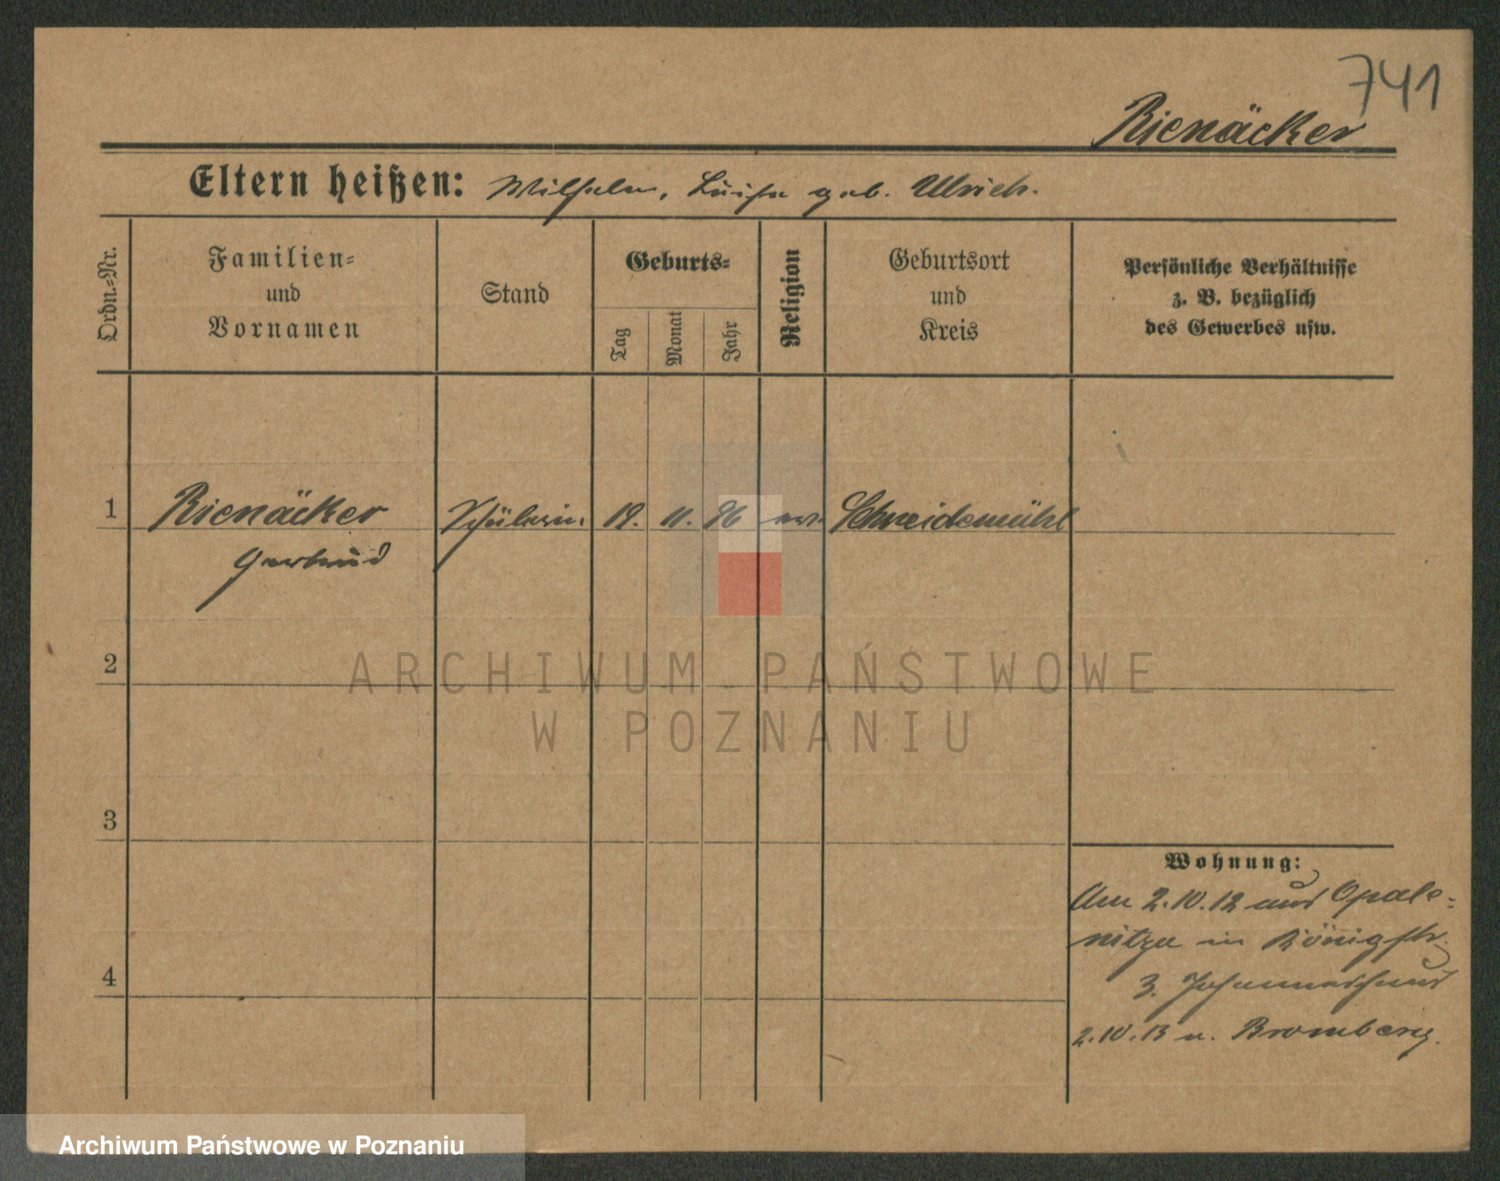 741
Rienäcker
Eltern heißen: Wilhelm, Luise geb. Ulrich.
Ordn.-Nr.
Familien-
und
Vornamen
Stand
Geburts-
Tag
Monat
Jahr
Religion
Geburtsort
und
Kreis
Persönliche Verhältnisse
z. B. bezüglich
des Gewerbes usw.
1 Rienäcker Schülerin. 19. 11. 96 ev. Schneidemühl
Gertrud
2
3
4
Wohnung:
Am 2.10.12 aus Opale-
nitza in Königstr.
3. Johanneshaus
2.10.13 n. Bromberg.
ARCHIWUM PAŃSTWOWE
W POZNANIU
Archiwum Państwowe w Poznaniu